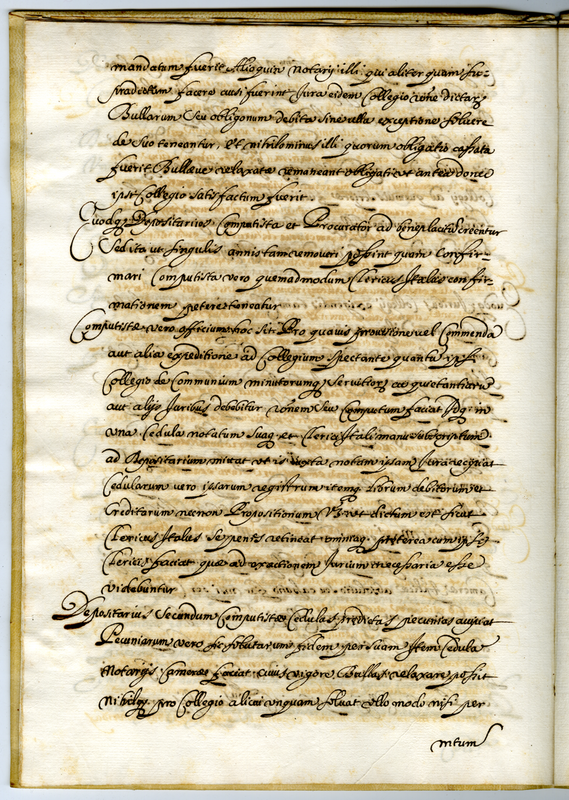 mandatum fuerit Alioquin Notarij illi qui aliter quam su-
pradictum facere ausi fuerint Jura eidem Collegio rõne dictarz
Bullarum seu obligonum debita sine ulla exceptione soluere
de suo teneantur, Et nihilominus illi quorum obligatio cassata
fuerit Bullaeue relaxatae remaneant obligati et antea donec
ipsi Collegio satisfactum fuerit
Quodq; Depositarius Computista et Procurator ad beneplacitũ creentur
sed ita ut singulis annis tam remoueri possint quam confir-
mari Computista vero quemadmodum Clericus Italus confir-
mationem petere teneatur
Computistae vero officium hoc sit Pro quauis prouisione vel Commenda
aut alia expeditione ad Collegium spectante quantũ ipsi
Collegio de Communium minutorumq; seruitiorz ac quietantiarũ
aut alijs Juribus debebitur rõnem seu Computum faciat Idq; in
una Cedula notatum suaq; et Clerici Itali manu subscriptum
ad Depositarium mittat ut is iuxta notam ipsam Jura recipiat
Cedularum vero ipsarum registrum itemq; librum debitorum et
Creditorum necnon Propositionum ut dictum est ficat
Clericus Italus se penes retineat omniaq; praeterea cum ipso
Clerico faciat quae ad exactionem Jurium necessaria esse
videbuntur
Depositarius secundum Computistae Cedulas praedictas pecunias accipiat
Pecuniarum vero sic solutarum fidem per suam item Cedulã
Notarijs Camerae faciat cuius vigore Bullas relaxare possit
Nihilq; pro Collegio alicui unquam soluat ullo modo nisi per-
mtum